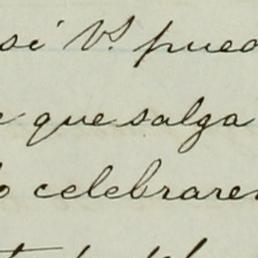 si V. pued
que salga
celebrare